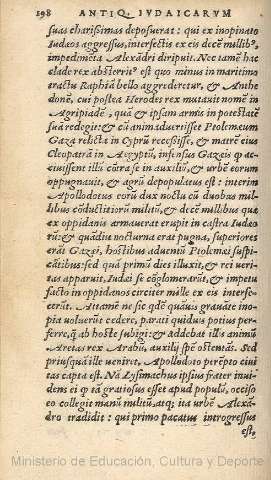 198 ANTIQ. IVDAICARVM
suas charissimas deposuerat: qui ex inopinato
Iudæos aggressus, intersectis ex eis decē millib9,
impedimēta Alexādri diripuit. Nec tamē hac
clade rex absterrit9 est quo minus in maritimo
tractu Raphiā bello aggrederetur, & Anthe
donē, cui postea Herodes rex mutauit nomē in
Agripiadē, quā & ipsam armis in potestatē
suā redegit: & cū animaduertisset Ptolemæum
Gaza relicta in Cyprū recessisse, & matrē eius
Cleopatrā in Ægyptū, infensus Gazeis q̄ ac-
ciuissent illū cōtra se in auxiliū, & vrbē eorum
oppugnauit, & agrū depopulatus est: interim
Apollodotus eorū dux noctu cū duobus mil-
libus cōductitiorū militū, & decē millibus quæ
ex oppidanis armauerat erupit in castra Iudæo
rū: & quādiu nocturna erat pugna, superiores
erāt Gazæi, hostibus aduentū Ptolemæi suspi-
cātibus: sed quā primū dies illuxit, & rei veri-
tas apparuit, Iudæi se cōglomerāūt, & impetu
facto in oppidanos circiter mille ex eis interfe-
cerūt. Attamē ne sic qdē quāuis grauāte ino-
pia voluerūt cedere, parati quiduis potius per-
ferre, q̄ ab hoste subigi: & Addebat illis animū
Aretas rex Arabū, auxilij spē ostentās. Sed
priusquā ille veniret, Apollodoto perēpto ciui
tas capta est. Nā Lysimachus ipsius frater inui-
dens ei q̄ tā gratiosus esset apud populū, occiso
eo collegit manū militū, atq; ita vrbē Alexā-
dro tradidit: qui primo pacatus introgressus
est,
Ministerio de Educación, Cultura y Deporte